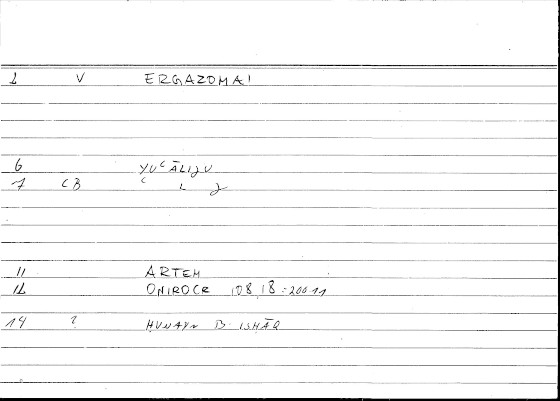 1 V ERGAZOMAI
6 YUʿĀLIJU
7 CB ʿ L J
11 ARTEM
12 ONIROCR 108,18 = 200 11
14 ? ḤUNAYN B. ISḤĀQ